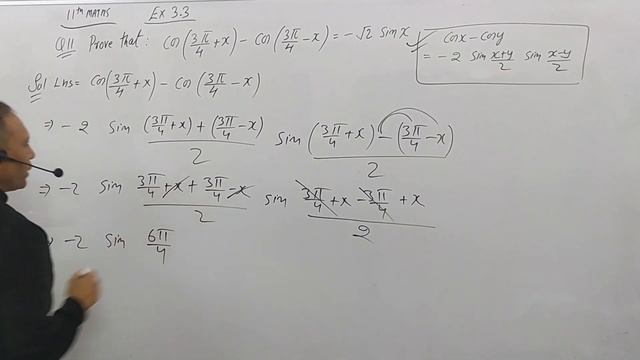 11th MATHS Ex 3.3
Q11 Prove that : Cos(3π/4 + x) - Cos(3π/4 - x) = -√2 Sin x
Cosx - Cosy
= -2 Sin x+y/2 Sin x-y/2
Sol LHS = Cos(3π/4 + x) - Cos(3π/4 - x)
⇒ -2 Sin (3π/4 + x) + (3π/4 - x)/2 Sin (3π/4 + x) - (3π/4 - x)/2
⇒ -2 Sin 3π/4 + x + 3π/4 - x/2 Sin 3π/4 + x - 3π/4 + x/2
⇒ -2 Sin 6π/4